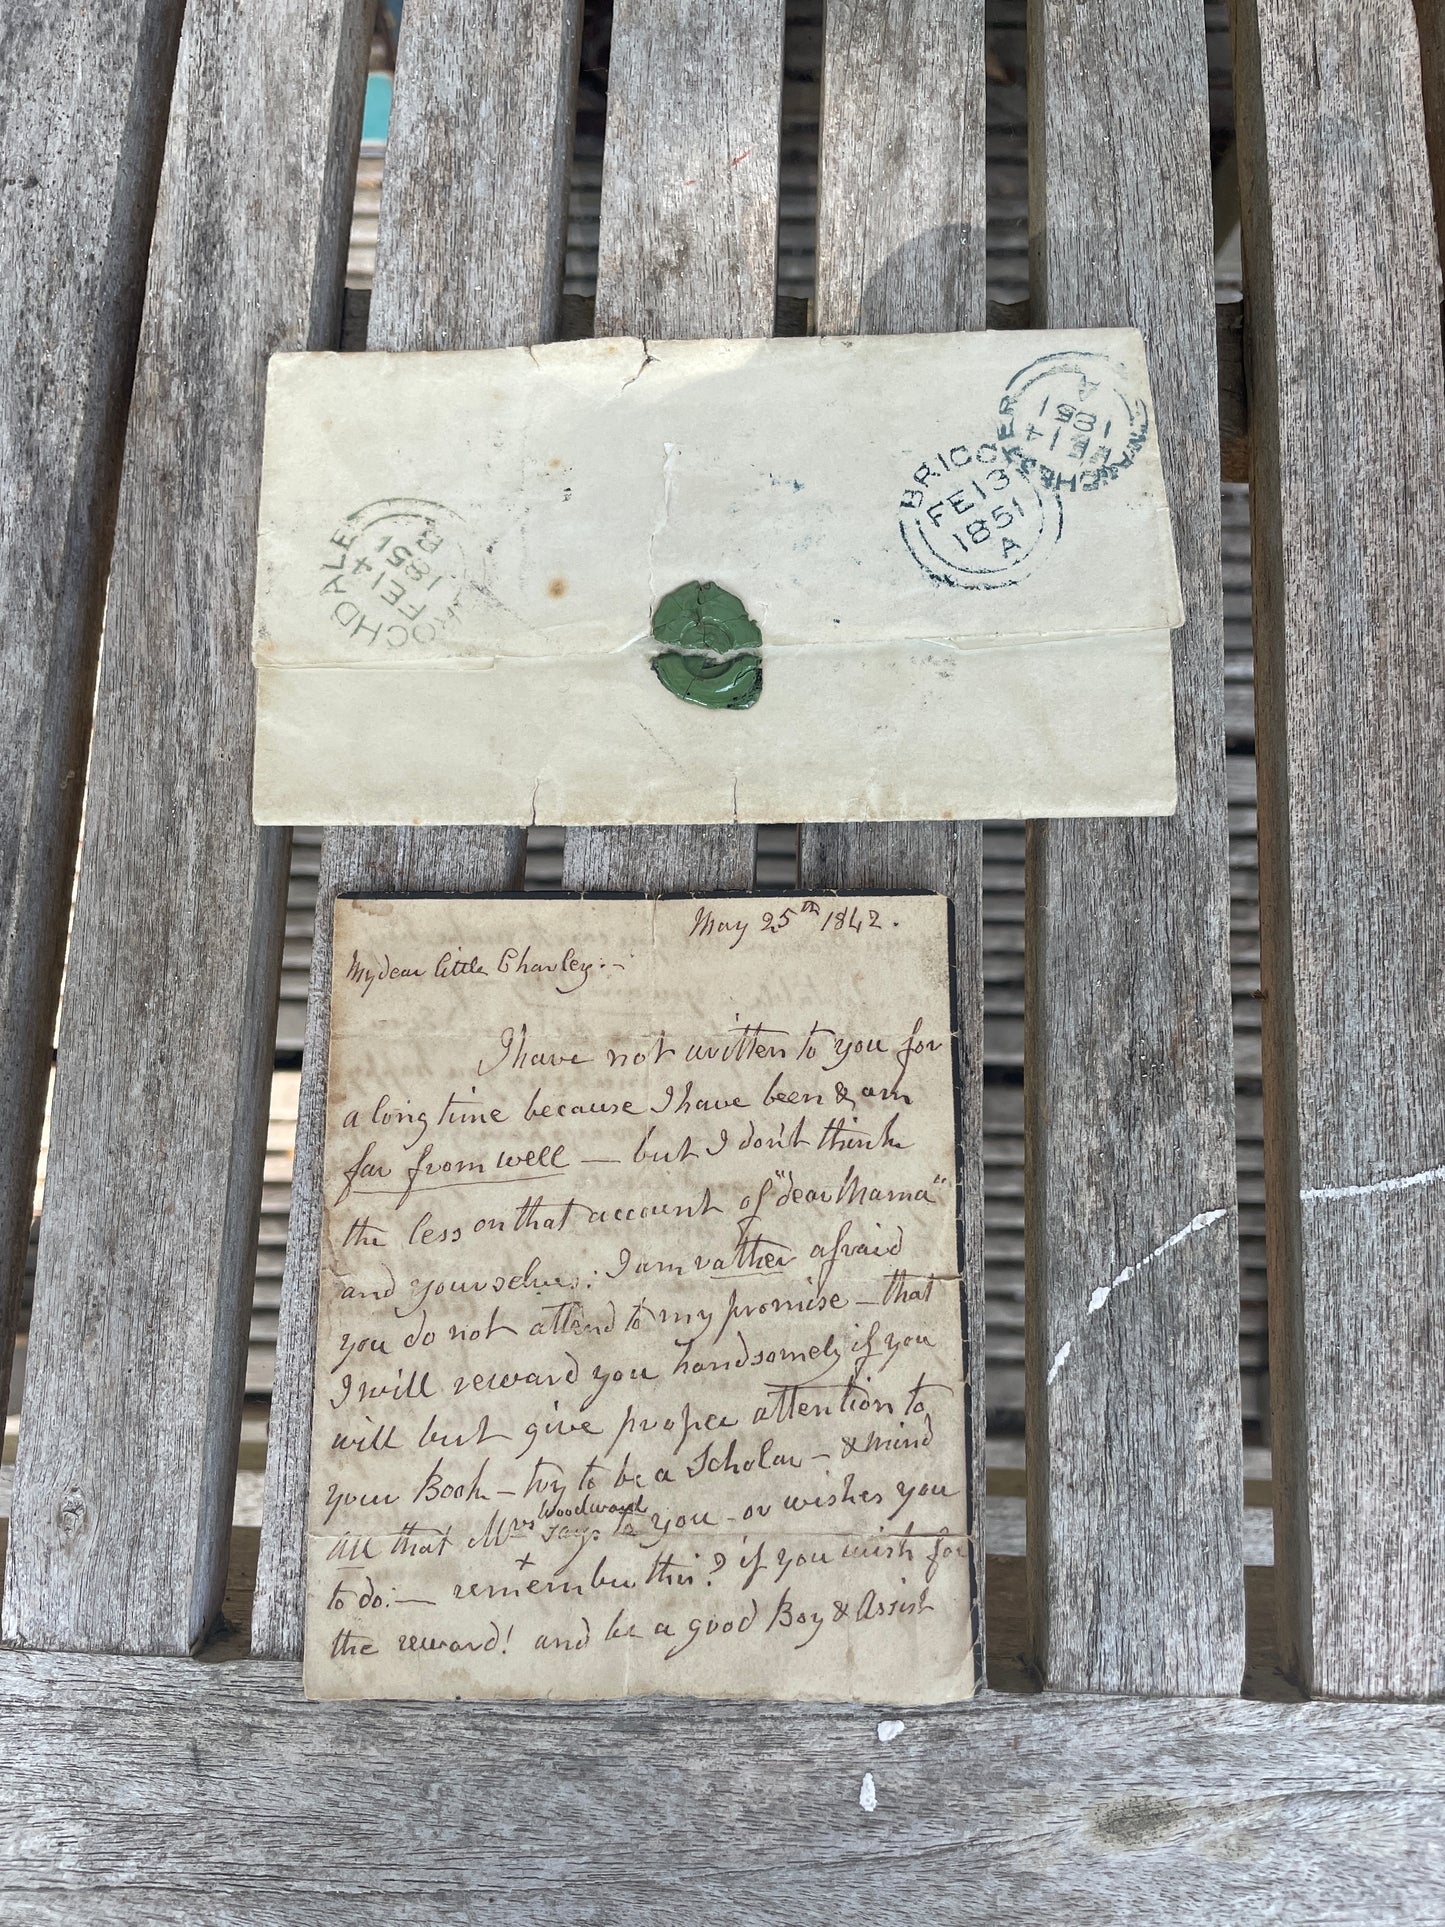 ROCHDALE
FE 14
1851
B
BRIGGER
FE 13
1851
A
MANCHESTER
FE 14
1851
A
May 25th 1842.
My dear little Charley:-
I have not written to you for
a long time because I have been & am
far from well — but I don't think
the less on that account of "dear Mama"
and yourselves: I am rather afraid
you do not attend to my promise — that
I will reward you handsomely if you
will but give proper attention to
your Book — try to be a Scholar — & mind
all that Mrs Woodward says to you - or wishes you
to do:— remember this? if you wish for
the reward! and be a good Boy & Assist